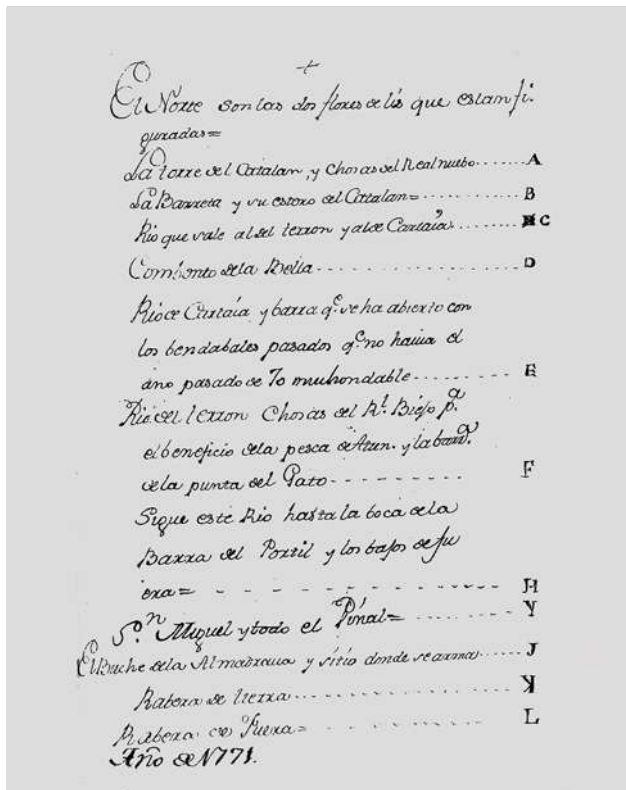 +
El Norte son las dos flores de lis que estam fi-
guradas=
La torre del Catalan, y Chosas del Real nuebo....... A
La Barreta y su estero del Catalan=........ B
Rio que sale al del terron y a los Cartaia........ C
Combento de la Bella................ D
Rio de Cartaía y barra q.e se ha abierto con
los bendabales pasados q.e no hauia el
año pasado de 70 mui hondable.......... E
Rio del terron Chosas del R.l Biejo p.a
el beneficio de la pesca de Atun. y la
de la punta del Gato--------- F
Sigue este Rio hasta la boca de la
Barra del Portil y los bajos de fu
era= - - - - - - - - - - - - H
S.n Miguel y todo el Pinal=......... Y
El Buche de la Almadraua y sitio donde se arma...... J
Rabera de tierra............... K
Rabera de Fuera=........... L
Año de 1771.